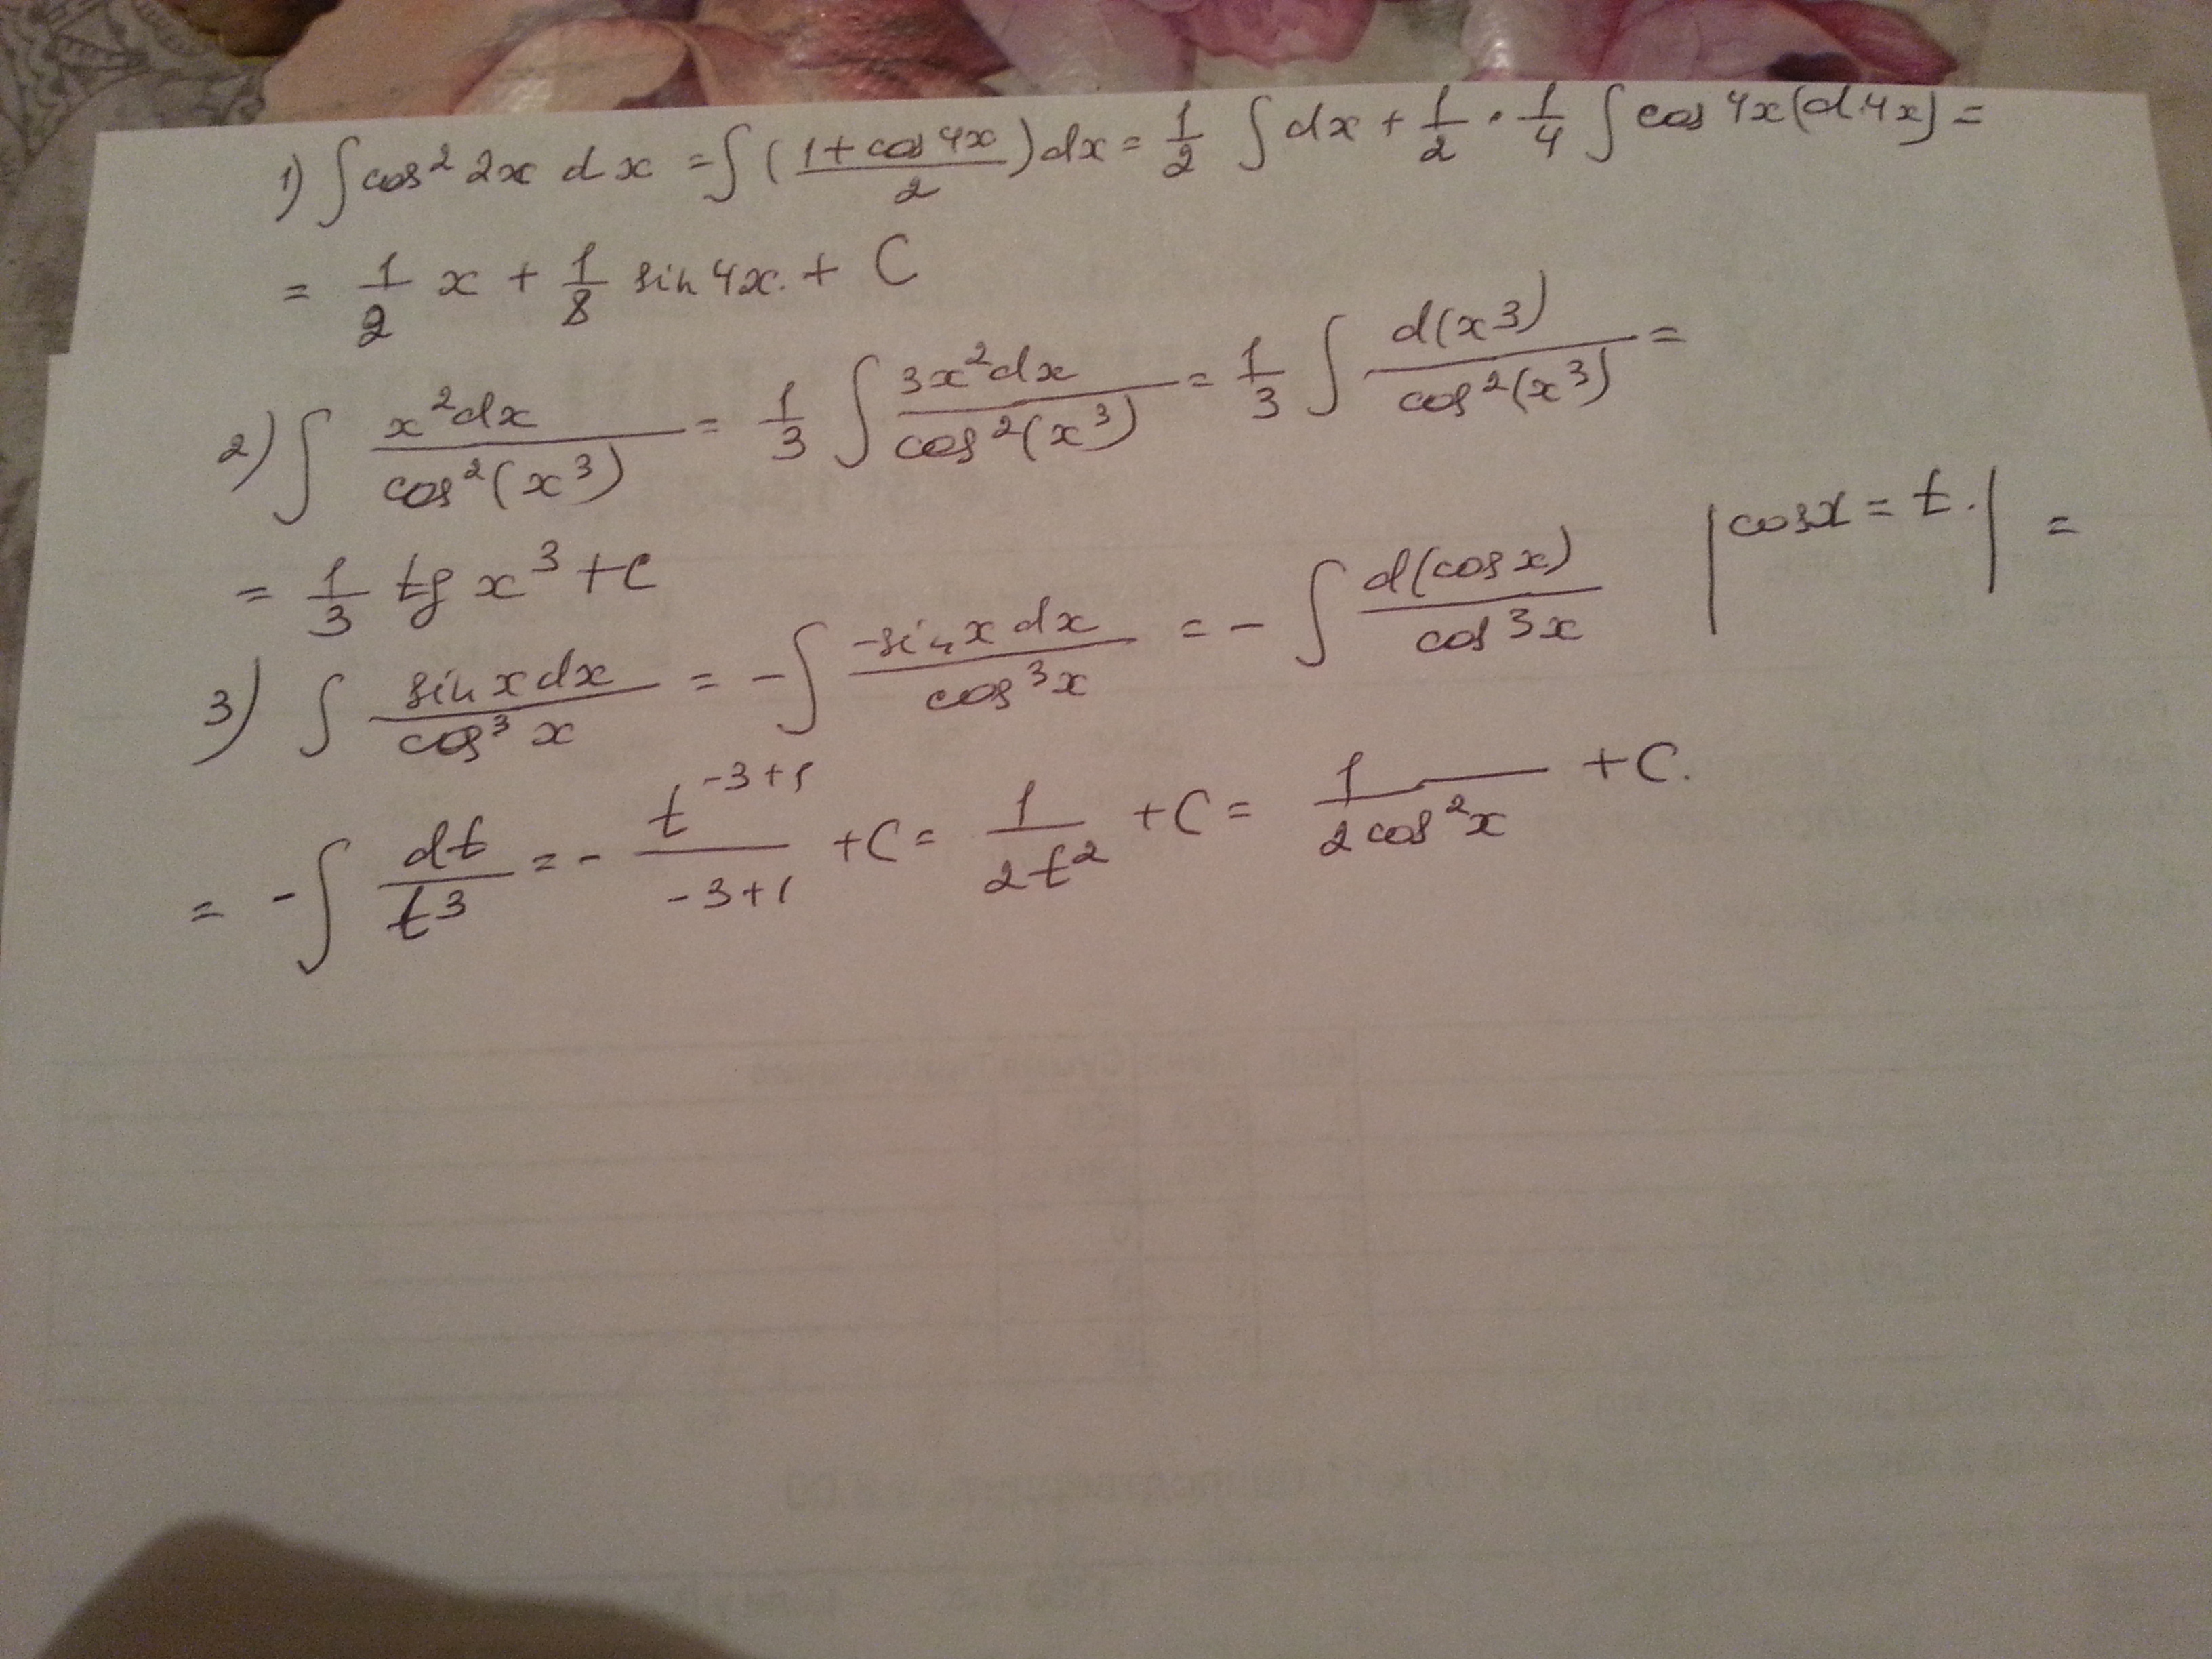 1) ∫ cos² 2x dx = ∫ ( (1 + cos 4x)/2 ) dx = 1/2 ∫ dx + 1/2 · 1/4 ∫ cos 4x (d 4x) =
= 1/2 x + 1/8 sin 4x. + C
2) ∫ x² dx / cos²(x³) = 1/3 ∫ 3x² dx / cos²(x³) = 1/3 ∫ d(x³) / cos²(x³) =
= 1/3 tg x³ + C
3) ∫ sin x dx / cos³ x = - ∫ -sin x dx / cos³ x = - ∫ d(cos x) / cos³ x | cos x = t. | =
= - ∫ dt / t³ = - t^(-3+1) / (-3+1) + C = 1 / 2t² + C = 1 / 2 cos² x + C.